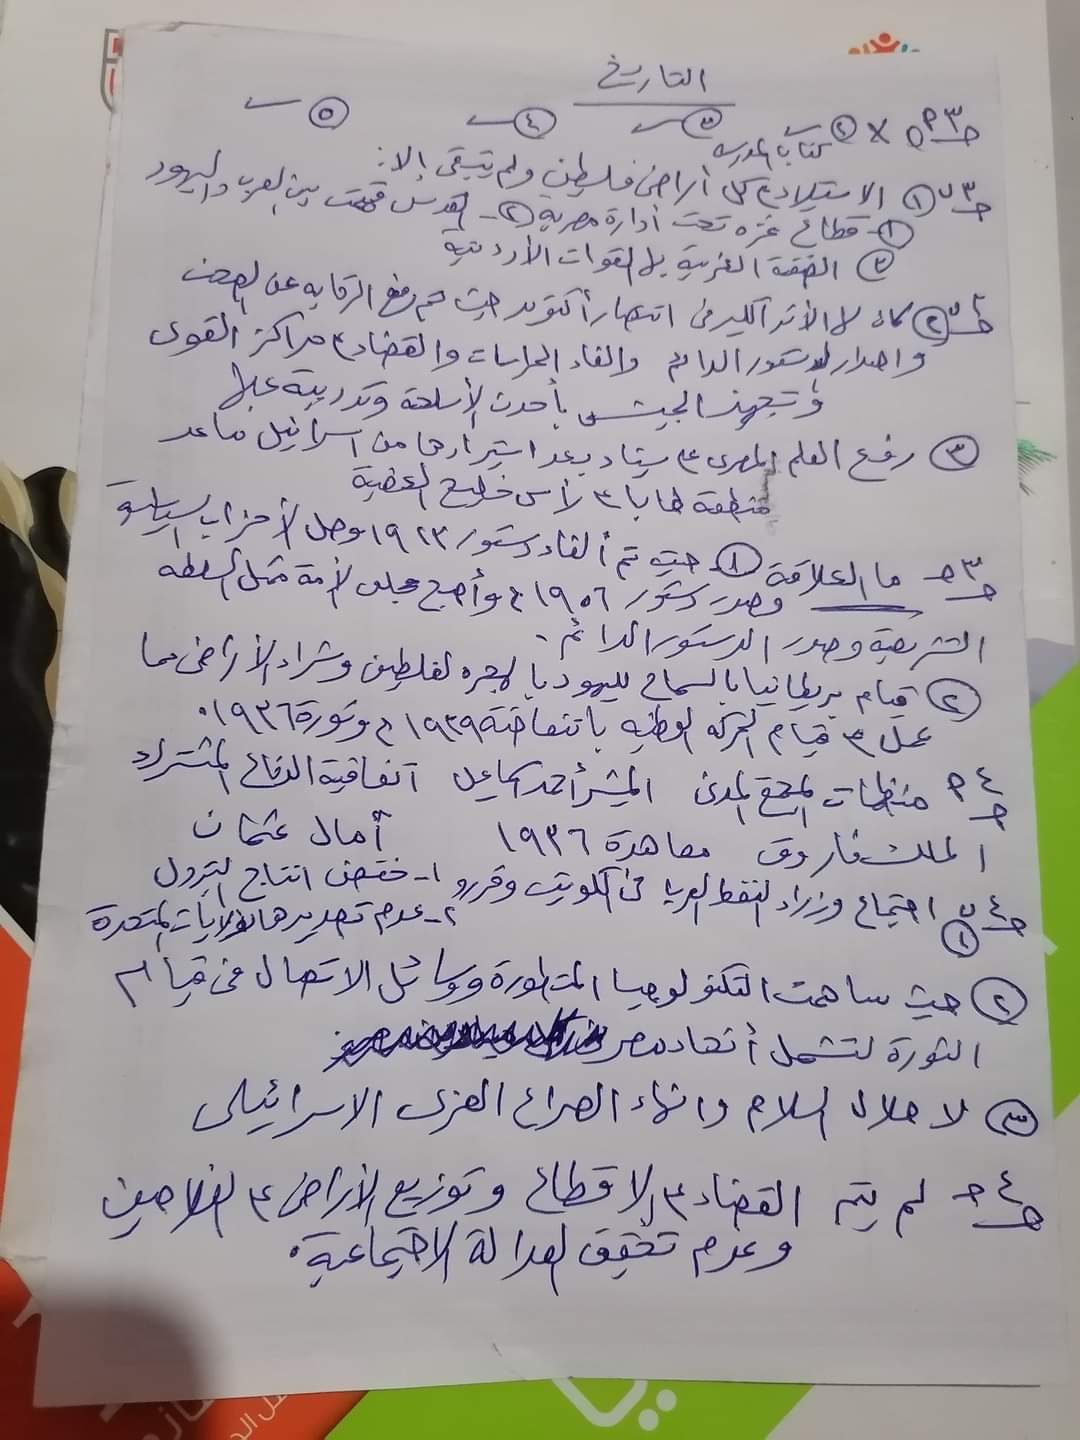 التاريخ
حـ٣ م ① × ② ــ ③ ــ ④ ــ ⑤ ــ
كتاب المدرسه
حـ٣ ب ① الاستيلاء على أراضى فلسطين ولم يتبقى إلا:
①- قطاع غزه تحت أدارة مصرية ②- القدس قسمت بين العرب واليهود
③ الضفة الغربية بالقوات الأردنية
② كان له الأثر الكبير فى انتصار أكتوبر حيث تم رفع الرقابه عن الصحف
واصدار الدستور الدائم والغاء الحراسات والقضاء ع مراكز القوى
وتجهيز الجيش بأحدث الأسلحة وتدريبه عليها
③ رفع العلم المصرى ع سيناء بعد استردادها من اسرائيل ماعد
منطقة طابا ع رأس خليج العقبة
حـ٣ جـ ما العلاقة ①- حيث تم ألغاء دستور ١٩٢٣ وحل الأحزاب السياسية
وصدر دستور ١٩٥٦ م وأصبح مجلس الأمة تمثل السلطه
التشريعية وصدر الدستور الدائم.
② قيام بريطانيا بالسماح لليهود بالهجره لفلسطين وشراء الأراضى مما
عمل ع قيام الحركه الوطنيه بانتفاضة ١٩٣٩ م وثورة ١٩٣٦.
حـ٤ م منظمات المجتمع المدنى المشير أحمد اسماعيل اتفاقية الدفاع المشترك
الملك فاروق معاهدة ١٩٣٦ أمال عثمان
حـ٤ ب ① اجتماع وزراء النفط العرب فى الكويت وقررو ١- خفض انتاج البترول
٢- عدم تصديرها للولايات المتحدة
② حيث ساهمت التكنولوجيا المتطورة ووسائل الاتصال فى قيام
الثورة لتشمل أنحاء مصر
③ لاحلال السلام وانهاء الصراع العربى الاسرائيلى
حـ٤ جـ لم يتم القضاء ع الاقطاع وتوزيع الأراضى ع الفلاحين
وعدم تحقيق العدالة الاجتماعية.